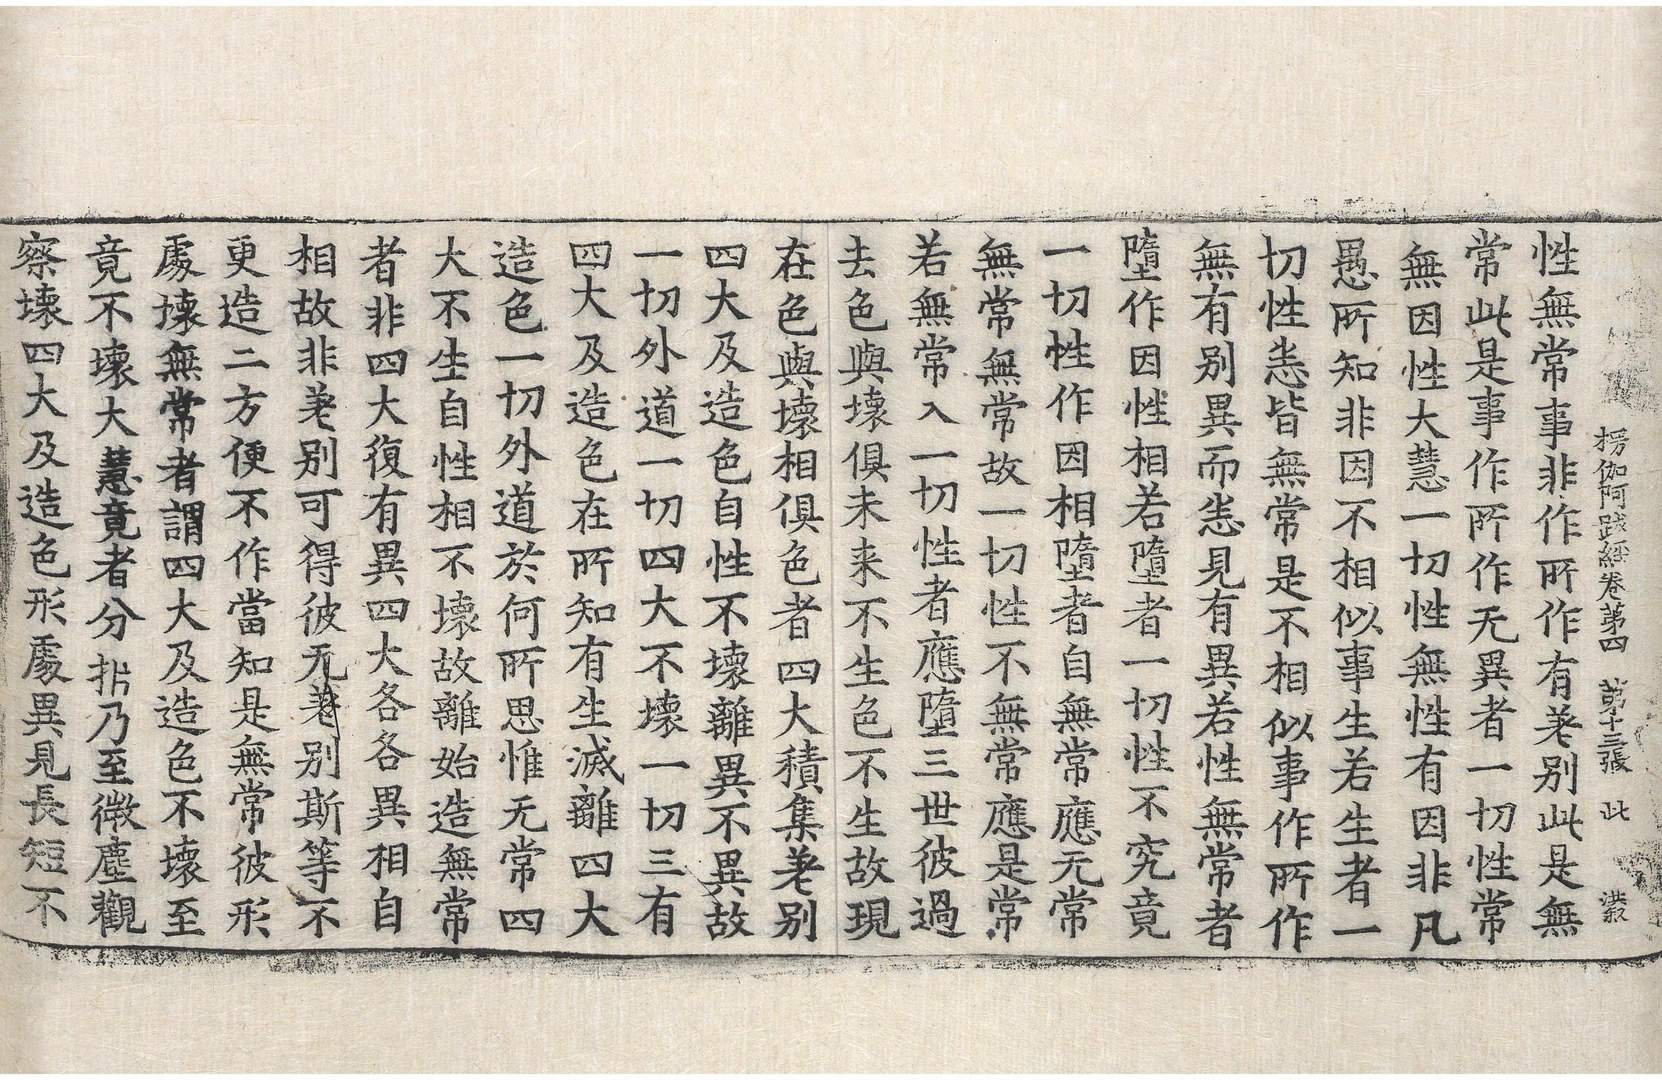 楞伽阿跋經卷第四　第十三張　此　洪叔
性無常事非作所作有差別此是無
常此是事作所作无異者一切性常
無因性大慧一切性無性有因非凡
愚所知非因不相似事生若生者一
切性悉皆無常是不相似事作所作
無有別異而悉見有異若性無常者
墮作因性相若墮者一切性不究竟
一切性作因相墮者自無常應无常
無常無常故一切性不無常應是常
若無常入一切性者應墮三世彼過
去色與壞俱未来不生色不生故現
在色與壞相俱色者四大積集差別
四大及造色自性不壞離異不異故
一切外道一切四大不壞一切三有
四大及造色在所知有生滅離四大
造色一切外道於何所思惟无常四
大不生自性相不壞故離始造無常
者非四大復有異四大各各異相自
相故非差別可得彼无差別斯等不
更造二方便不作當知是無常彼形
處壞無常者謂四大及造色不壞至
竟不壞大慧竟者分㭊乃至微塵觀
察壞四大及造色形處異見長短不